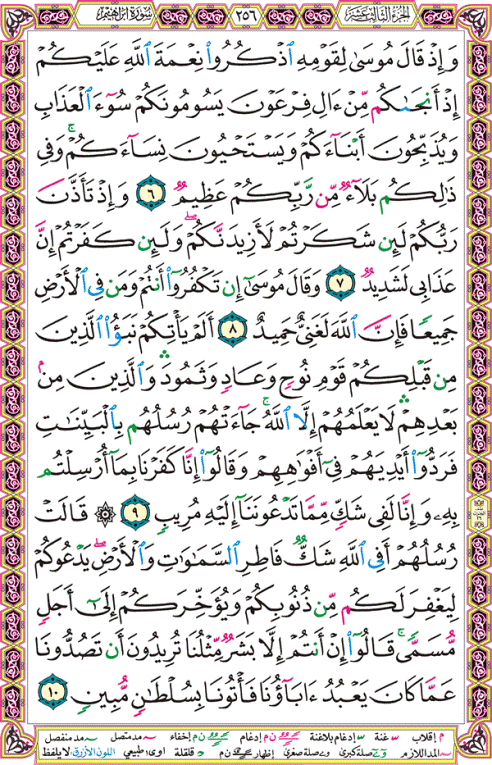 الجزء الثالث عشر ٢٥٦ سورة إبراهيم
وَإِذْ قَالَ مُوسَىٰ لِقَوْمِهِ ٱذْكُرُوا۟ نِعْمَةَ ٱللَّهِ عَلَيْكُمْ
إِذْ أَنجَىٰكُم مِّنْ ءَالِ فِرْعَوْنَ يَسُومُونَكُمْ سُوٓءَ ٱلْعَذَابِ
وَيُذَبِّحُونَ أَبْنَآءَكُمْ وَيَسْتَحْيُونَ نِسَآءَكُمْ ۚ وَفِى
ذَٰلِكُم بَلَآءٌ مِّن رَّبِّكُمْ عَظِيمٌ ٦ وَإِذْ تَأَذَّنَ
رَبُّكُمْ لَئِن شَكَرْتُمْ لَأَزِيدَنَّكُمْ ۖ وَلَئِن كَفَرْتُمْ إِنَّ
عَذَابِى لَشَدِيدٌ ٧ وَقَالَ مُوسَىٰٓ إِن تَكْفُرُوٓا۟ أَنتُمْ وَمَن فِى ٱلْأَرْضِ
جَمِيعًا فَإِنَّ ٱللَّهَ لَغَنِىٌّ حَمِيدٌ ٨ أَلَمْ يَأْتِكُمْ نَبَؤُا۟ ٱلَّذِينَ
مِن قَبْلِكُمْ قَوْمِ نُوحٍ وَعَادٍ وَثَمُودَ ۛ وَٱلَّذِينَ مِنۢ
بَعْدِهِمْ ۛ لَا يَعْلَمُهُمْ إِلَّا ٱللَّهُ ۚ جَآءَتْهُمْ رُسُلُهُم بِٱلْبَيِّنَـٰتِ
فَرَدُّوٓا۟ أَيْدِيَهُمْ فِىٓ أَفْوَٰهِهِمْ وَقَالُوٓا۟ إِنَّا كَفَرْنَا بِمَآ أُرْسِلْتُم
بِهِۦ وَإِنَّا لَفِى شَكٍّ مِّمَّا تَدْعُونَنَآ إِلَيْهِ مُرِيبٍ ٩ ۞ قَالَتْ
رُسُلُهُمْ أَفِى ٱللَّهِ شَكٌّ فَاطِرِ ٱلسَّمَـٰوَٰتِ وَٱلْأَرْضِ ۖ يَدْعُوكُمْ
لِيَغْفِرَ لَكُم مِّن ذُنُوبِكُمْ وَيُؤَخِّرَكُمْ إِلَىٰٓ أَجَلٍ
مُّسَمًّى ۚ قَالُوٓا۟ إِنْ أَنتُمْ إِلَّا بَشَرٌ مِّثْلُنَا تُرِيدُونَ أَن تَصُدُّونَا
عَمَّا كَانَ يَعْبُدُ ءَابَآؤُنَا فَأْتُونَا بِسُلْطَـٰنٍ مُّبِينٍ ١٠
م إقلاب س غنة س إدغام بلاغنة ن م إدغام ن م إخفاء مد متصل مد منفصل
المد اللازم صلة كبرى صلة صغرى إظهار ن م قلقلة اوى طبيعي اللون الأزرق لا يلفظ